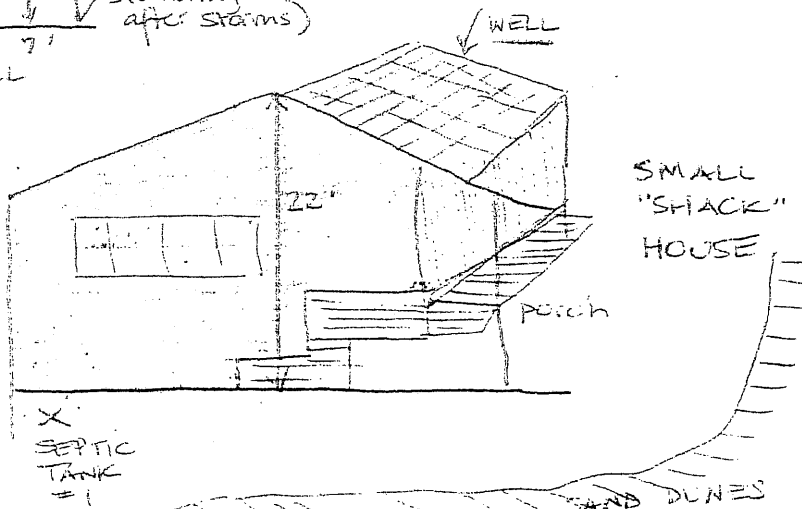 after storms)
7'
WELL
22'
SMALL
"SHACK"
HOUSE
porch
X
SEPTIC
TANK
#1
SAND DUNES